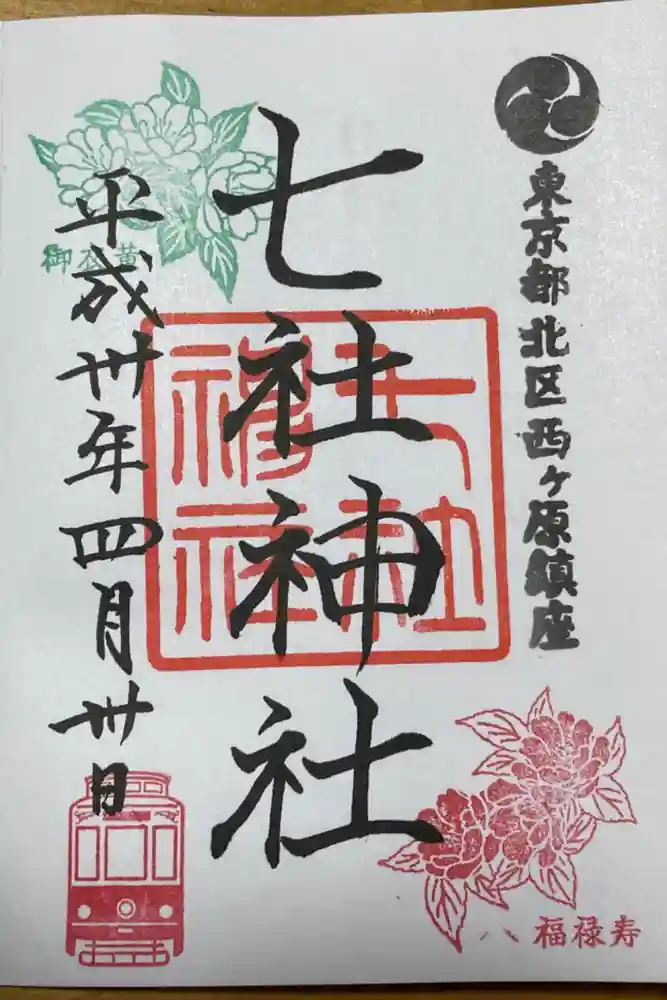 東京都北区西ヶ原鎮座
七社神社
七社
神社
平成卅年四月卅日
御衣黄
福禄寿